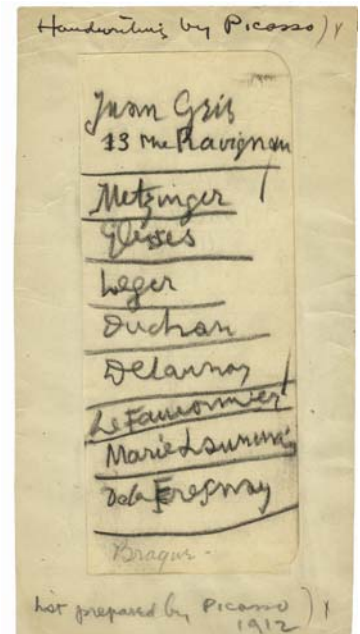 Handwriting by Picasso)
Juan Gris
13 rue Ravignan
Metzinger
Gleises
Leger
Duchan
Delaunay
Le Fauconnier
Marie Laurencin
De la Fresnay
Braque -
List prepared by Picasso)
1912